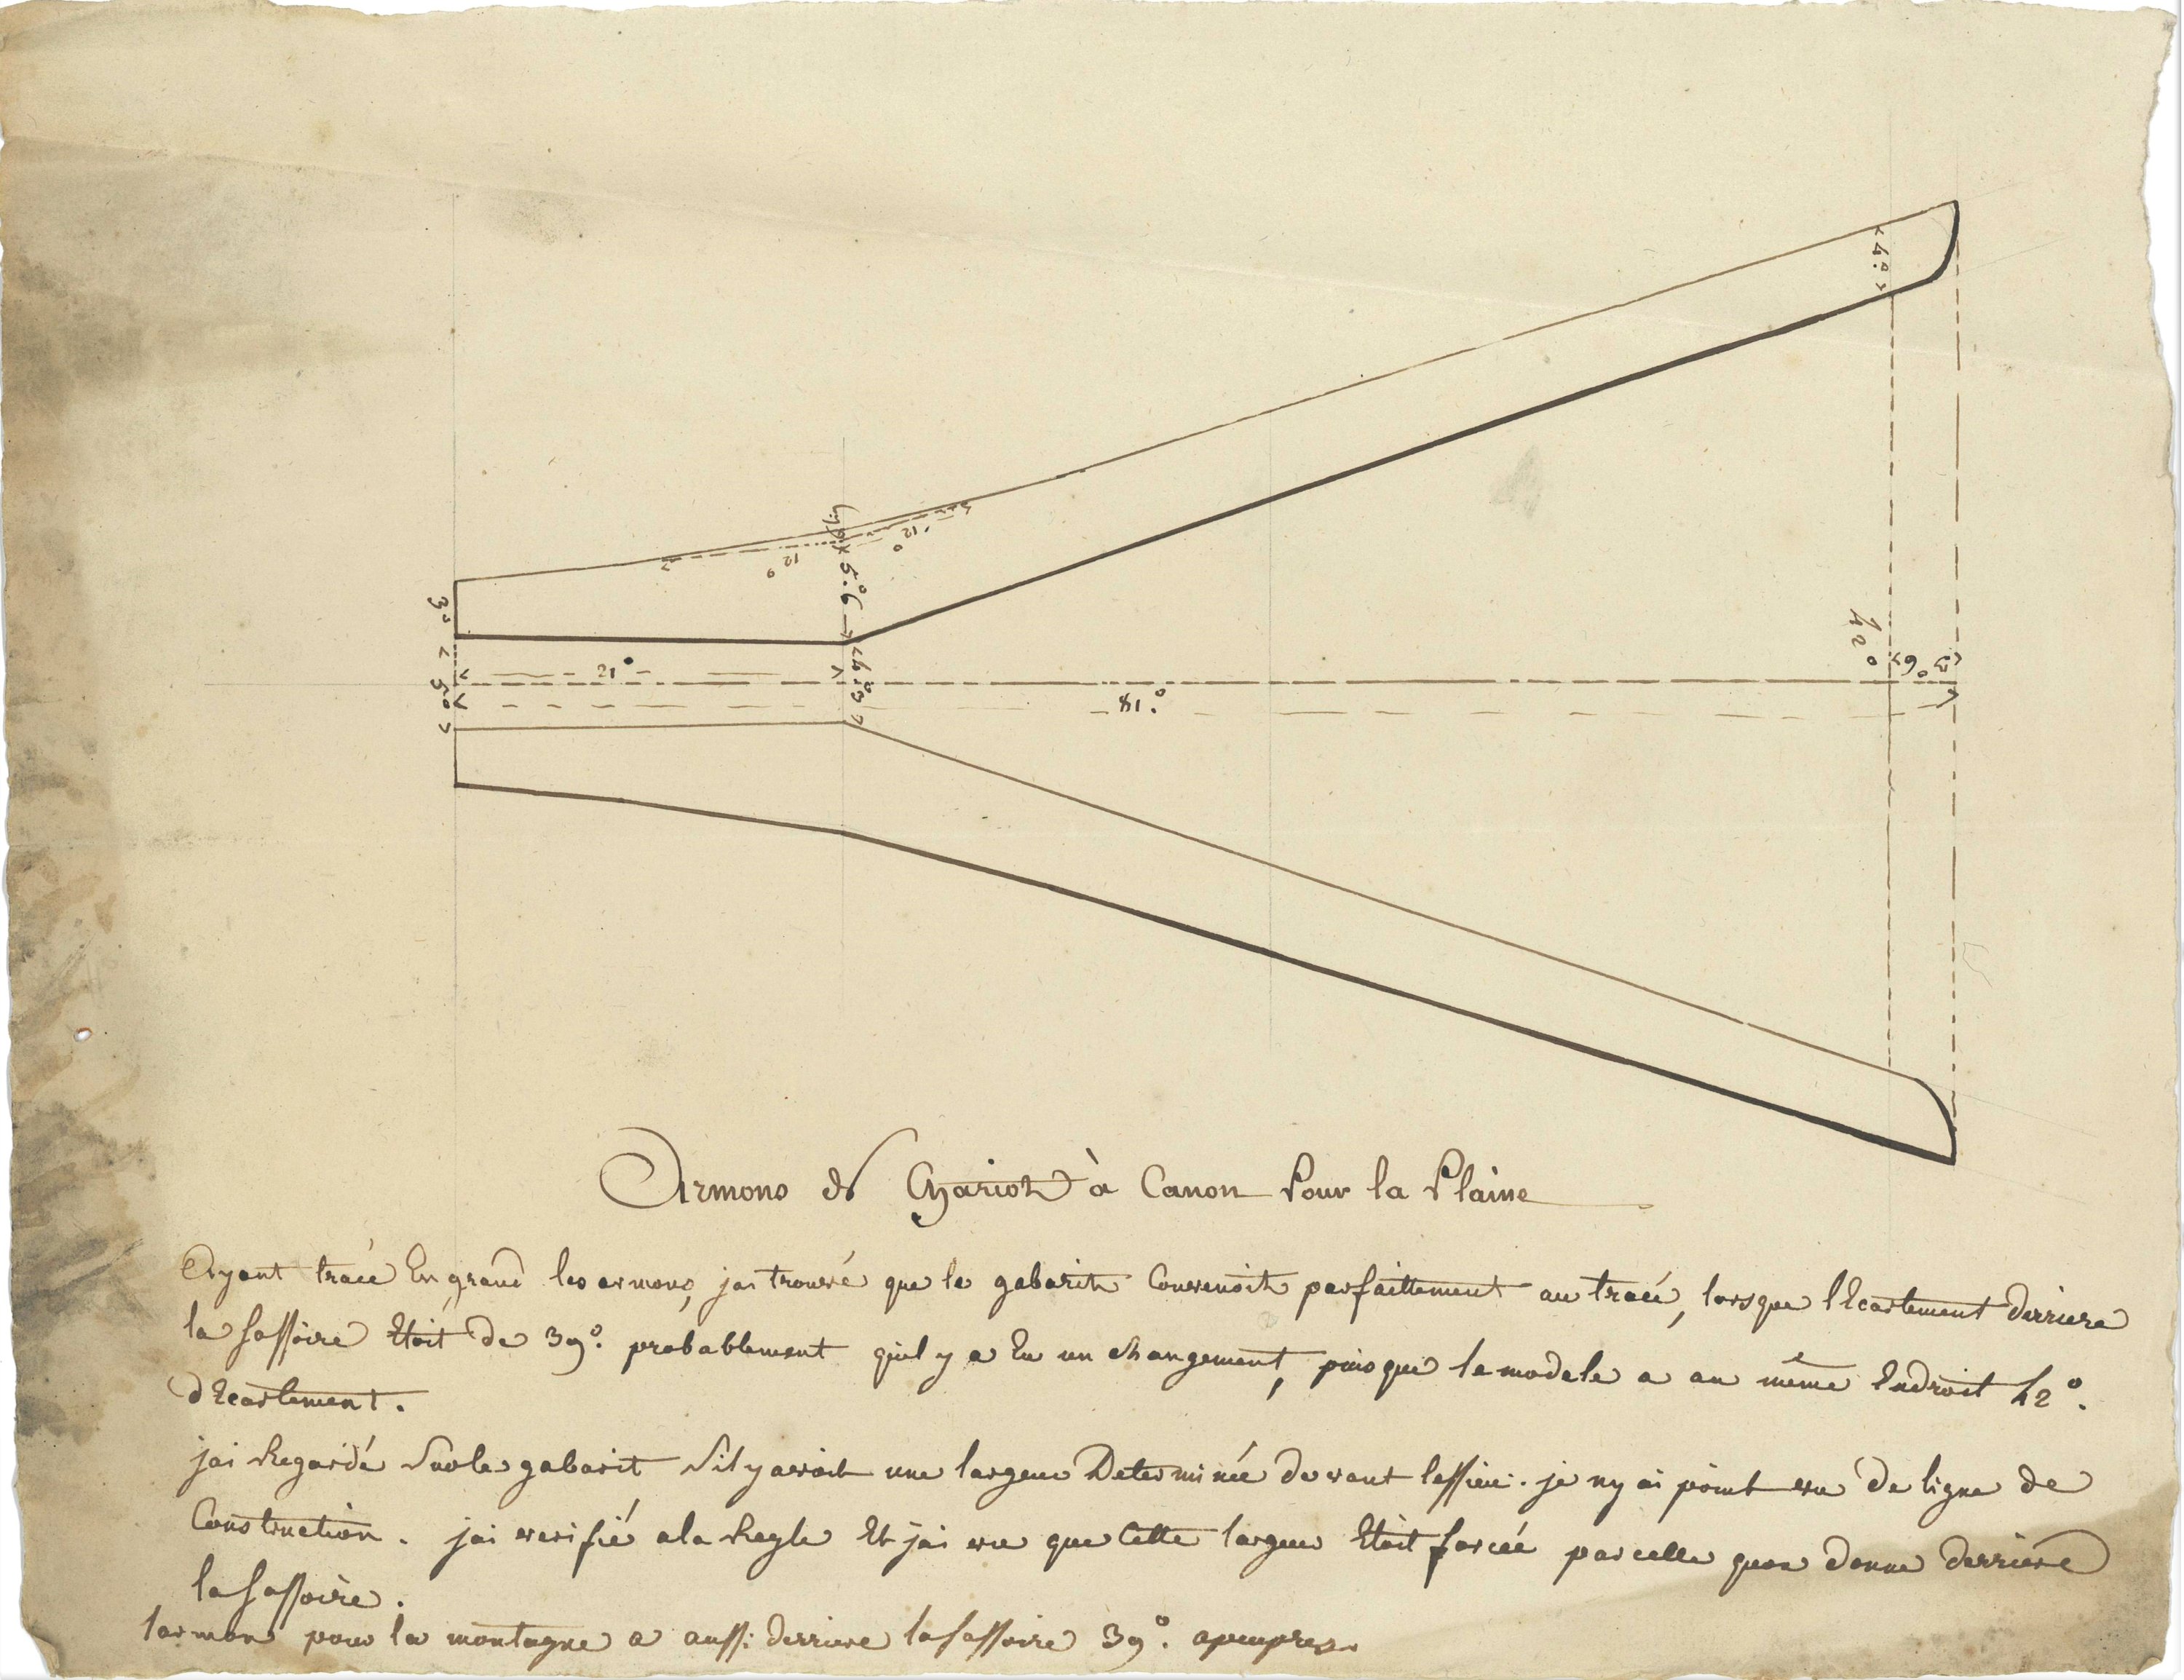 4.°
12°
12°
5.°6
3°
21°
4.°3
5°
42°
6°3
81.°
Armons de Chariot à Canon Pour la Plaine
Ayant tracé En grand les armons, jai trouvé que le gabarit Convenoit parfaittement au tracé, lorsque lEcartement derriere
la Sassoire Etoit de 39°. probablement quil y a Eu un changement, puisque le modele a au même Endroit 42°.
dEcartement.
jai Regardé Sur le gabarit Sil y avoit une largeur Determinée devant lessieu. je ny ai point vu de ligne de
Construction. jai verifié a la Regle Et jai vu que Cette largeur Etoit forcée par celle quon donne derriere
la Sassoire.
larmon pour la montagne a aussi derriere la Sassoire 39°. apeupres.